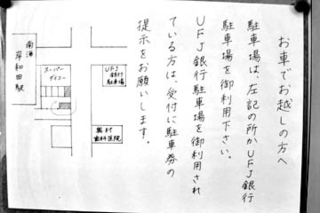 お車でお越しの方へ
駐車場は、左記の所かUFJ銀行
駐車場を御利用下さい。
UFJ銀行駐車場を御利用され
ている方は、受付に駐車券の
提示をお願いします。
南海
岸和田駅
スーパー
ダイエー
UFJ
銀行
駐車場
歯科医院